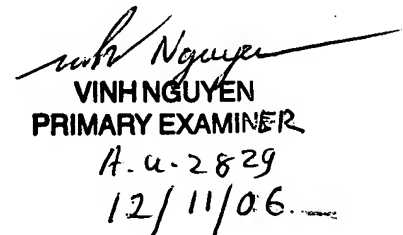 Vinh Nguyen
VINH NGUYEN
PRIMARY EXAMINER
A.U. 2829
12/11/06.